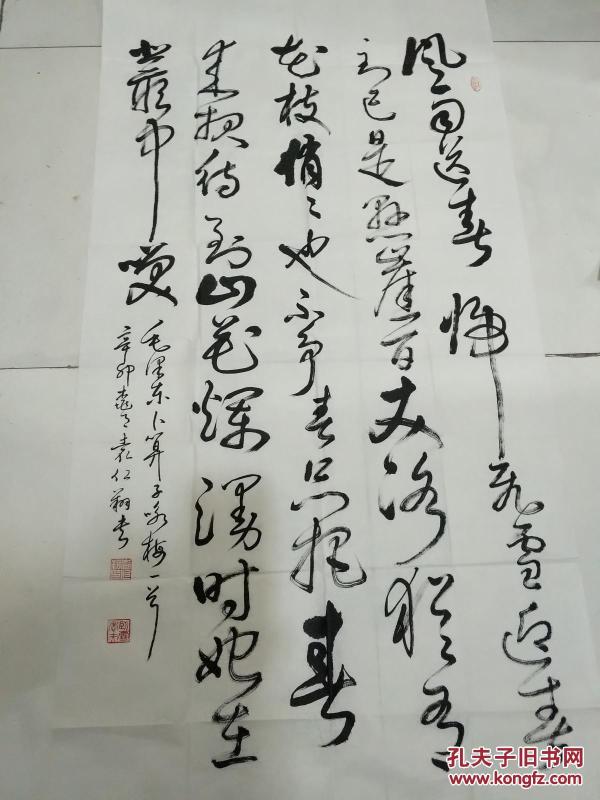 风雨送春归飞雪迎春
到已是悬崖百丈冰犹有
花枝俏々也不争春只把春
来报待到山花烂漫时她在
叢中笑
毛泽东卜算子咏梅一首
辛卯袁仁翔书
孔夫子旧书网
www.kongfz.com